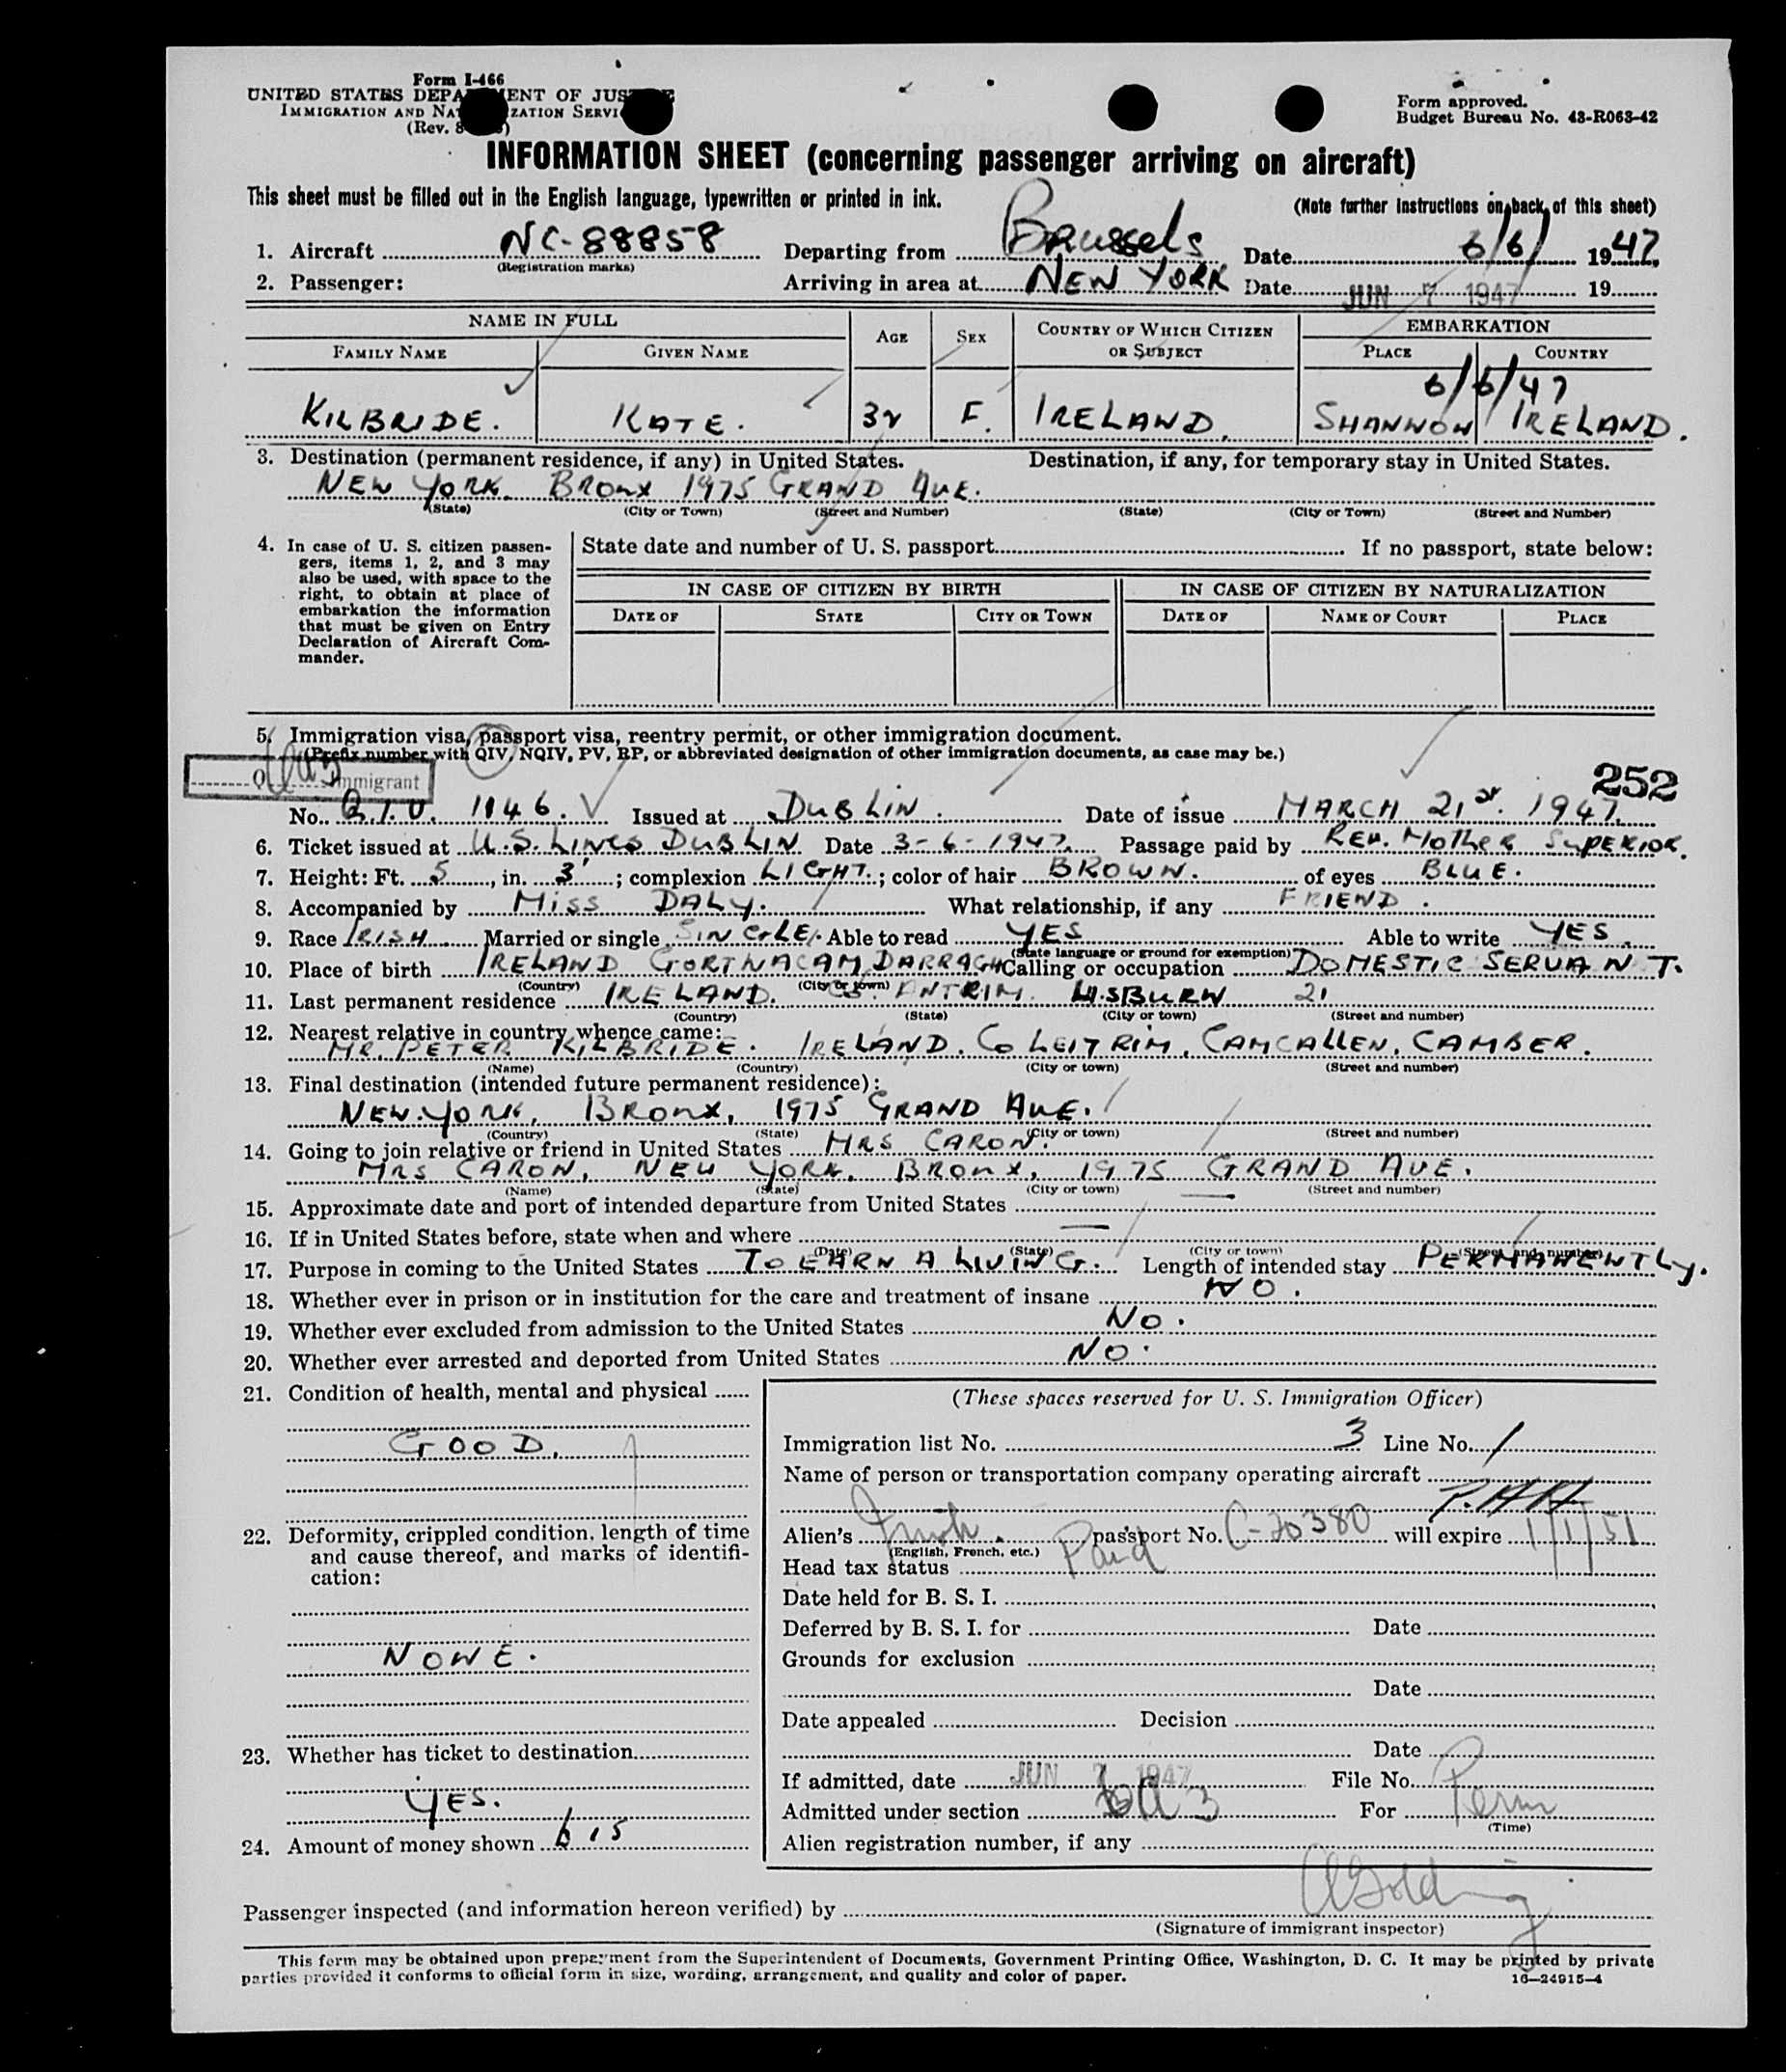 Form I-466
UNITED STATES DEPARTMENT OF JUSTICE
IMMIGRATION AND NATURALIZATION SERVICE
(Rev. 8
Form approved.
Budget Bureau No. 43-R063-42
INFORMATION SHEET (concerning passenger arriving on aircraft)
This sheet must be filled out in the English language, typewritten or printed in ink.
(Note further instructions on back of this sheet)
1. Aircraft NC-88858 Departing from Brussels Date 6/6/ 1947.
(Registration marks)
2. Passenger: Arriving in area at NEW YORK Date JUN 7 1947 19
NAME IN FULL AGE SEX COUNTRY OF WHICH CITIZEN OR SUBJECT EMBARKATION
FAMILY NAME GIVEN NAME PLACE COUNTRY
6/6/47
KILBRIDE. KATE. 32 F. IRELAND. SHANNON IRELAND.
3. Destination (permanent residence, if any) in United States. Destination, if any, for temporary stay in United States.
NEW YORK. BRONX 1975 GRAND AVE.
(State) (City or Town) (Street and Number) (State) (City or Town) (Street and Number)
4. In case of U. S. citizen passen-
gers, items 1, 2, and 3 may
also be used, with space to the
right, to obtain at place of
embarkation the information
that must be given on Entry
Declaration of Aircraft Com-
mander.
State date and number of U. S. passport If no passport, state below:
IN CASE OF CITIZEN BY BIRTH IN CASE OF CITIZEN BY NATURALIZATION
DATE OF STATE CITY OR TOWN DATE OF NAME OF COURT PLACE
5. Immigration visa, passport visa, reentry permit, or other immigration document.
(Prefix number with QIV, NQIV, PV, RP, or abbreviated designation of other immigration documents, as case may be.)
Immigrant
252
No. Q.I.V. 1146. Issued at DUBLIN. Date of issue MARCH 21st. 1947.
6. Ticket issued at U.S. LINES DUBLIN Date 3-6-1947. Passage paid by REV. MOTHER SUPERIOR.
7. Height: Ft. 5, in. 3'; complexion LIGHT.; color of hair BROWN. of eyes BLUE.
8. Accompanied by MISS DALY. What relationship, if any FRIEND.
9. Race IRISH Married or single SINGLE. Able to read YES Able to write YES.
(State language or ground for exemption)
10. Place of birth IRELAND GORTNACAM DARRAGH Calling or occupation DOMESTIC SERVANT.
(Country) (City or town)
11. Last permanent residence IRELAND. CO. ANTRIM. LISBURN 21
(Country) (State) (City or town) (Street and number)
12. Nearest relative in country whence came:
MR. PETER KILBRIDE. IRELAND. CO LEITRIM, CAMCALLEN, CAMBER.
(Name) (Country) (City or town) (Street and number)
13. Final destination (intended future permanent residence):
NEW.YORK, BRONX, 1975 GRAND AVE.
(Country) (State) (City or town) (Street and number)
14. Going to join relative or friend in United States MRS CARON.
MRS CARON, NEW YORK, BRONX, 1975 GRAND AVE.
(Name) (State) (City or town) (Street and number)
15. Approximate date and port of intended departure from United States —
16. If in United States before, state when and where —
(Date) (State) (City or town) (Street and number)
17. Purpose in coming to the United States TO EARN A LIVING. Length of intended stay PERMANENTLY.
18. Whether ever in prison or in institution for the care and treatment of insane NO.
19. Whether ever excluded from admission to the United States NO.
20. Whether ever arrested and deported from United States NO.
21. Condition of health, mental and physical
GOOD.
22. Deformity, crippled condition, length of time
and cause thereof, and marks of identifi-
cation:
NONE.
23. Whether has ticket to destination
YES.
24. Amount of money shown 615
(These spaces reserved for U. S. Immigration Officer)
Immigration list No. 3 Line No. 1
Name of person or transportation company operating aircraft
P.A.A.
Alien's Irish. passport No. C-20380 will expire 1/1/51
(English, French, etc.)
Head tax status Paid
Date held for B. S. I.
Deferred by B. S. I. for Date
Grounds for exclusion
Date
Date appealed Decision
Date
If admitted, date JUN 7 1947 File No.
Admitted under section 6a3 For Perm
(Time)
Alien registration number, if any
Passenger inspected (and information hereon verified) by
(Signature of immigrant inspector)
This form may be obtained upon prepayment from the Superintendent of Documents, Government Printing Office, Washington, D. C. It may be printed by private
parties provided it conforms to official form in size, wording, arrangement, and quality and color of paper. 16—24915-4